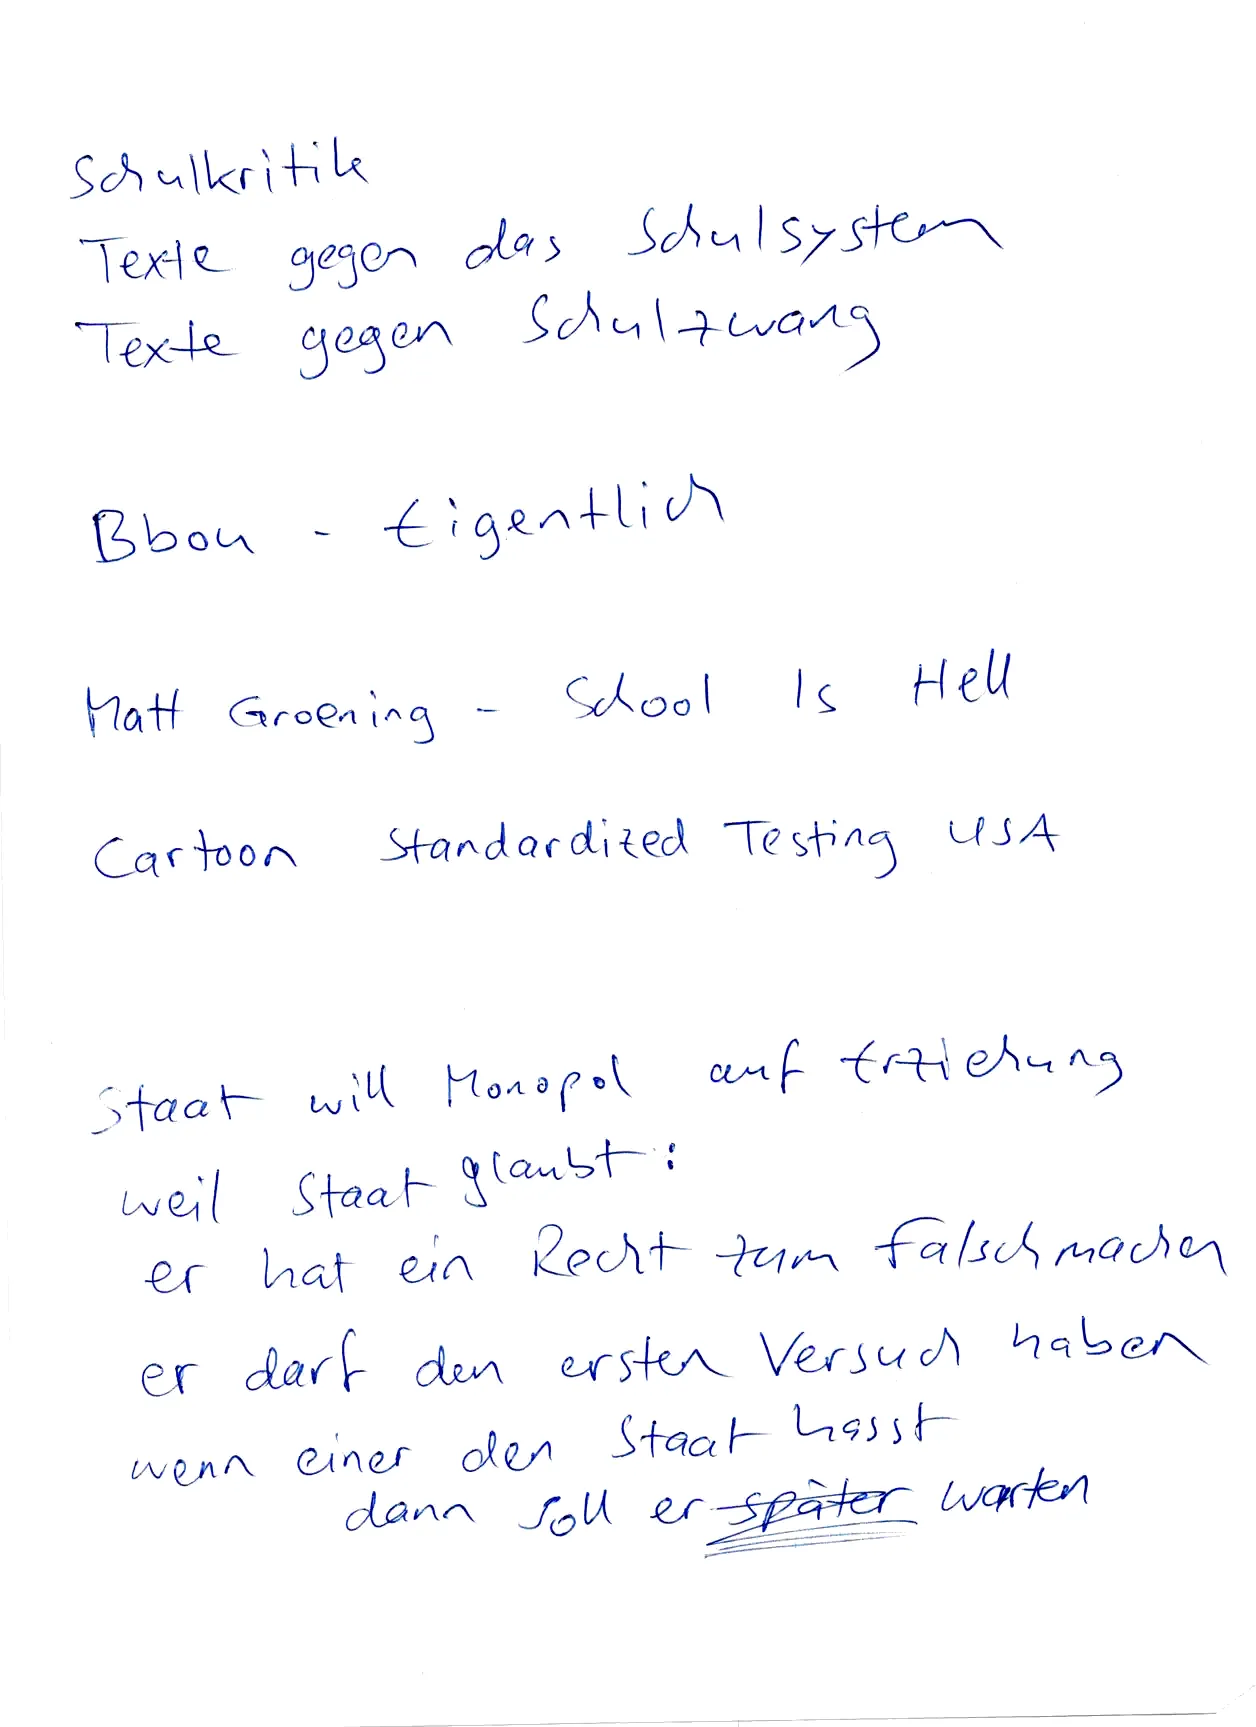 Schulkritik
Texte gegen das Schulsystem
Texte gegen Schulzwang
Bbou - Eigentlich
Matt Groening - School Is Hell
Cartoon Standardized Testing USA
Staat will Monopol auf Erziehung
weil Staat glaubt:
er hat ein Recht zum falschmachen
er darf den ersten Versuch haben
wenn einer den Staat hasst
dann soll er später warten